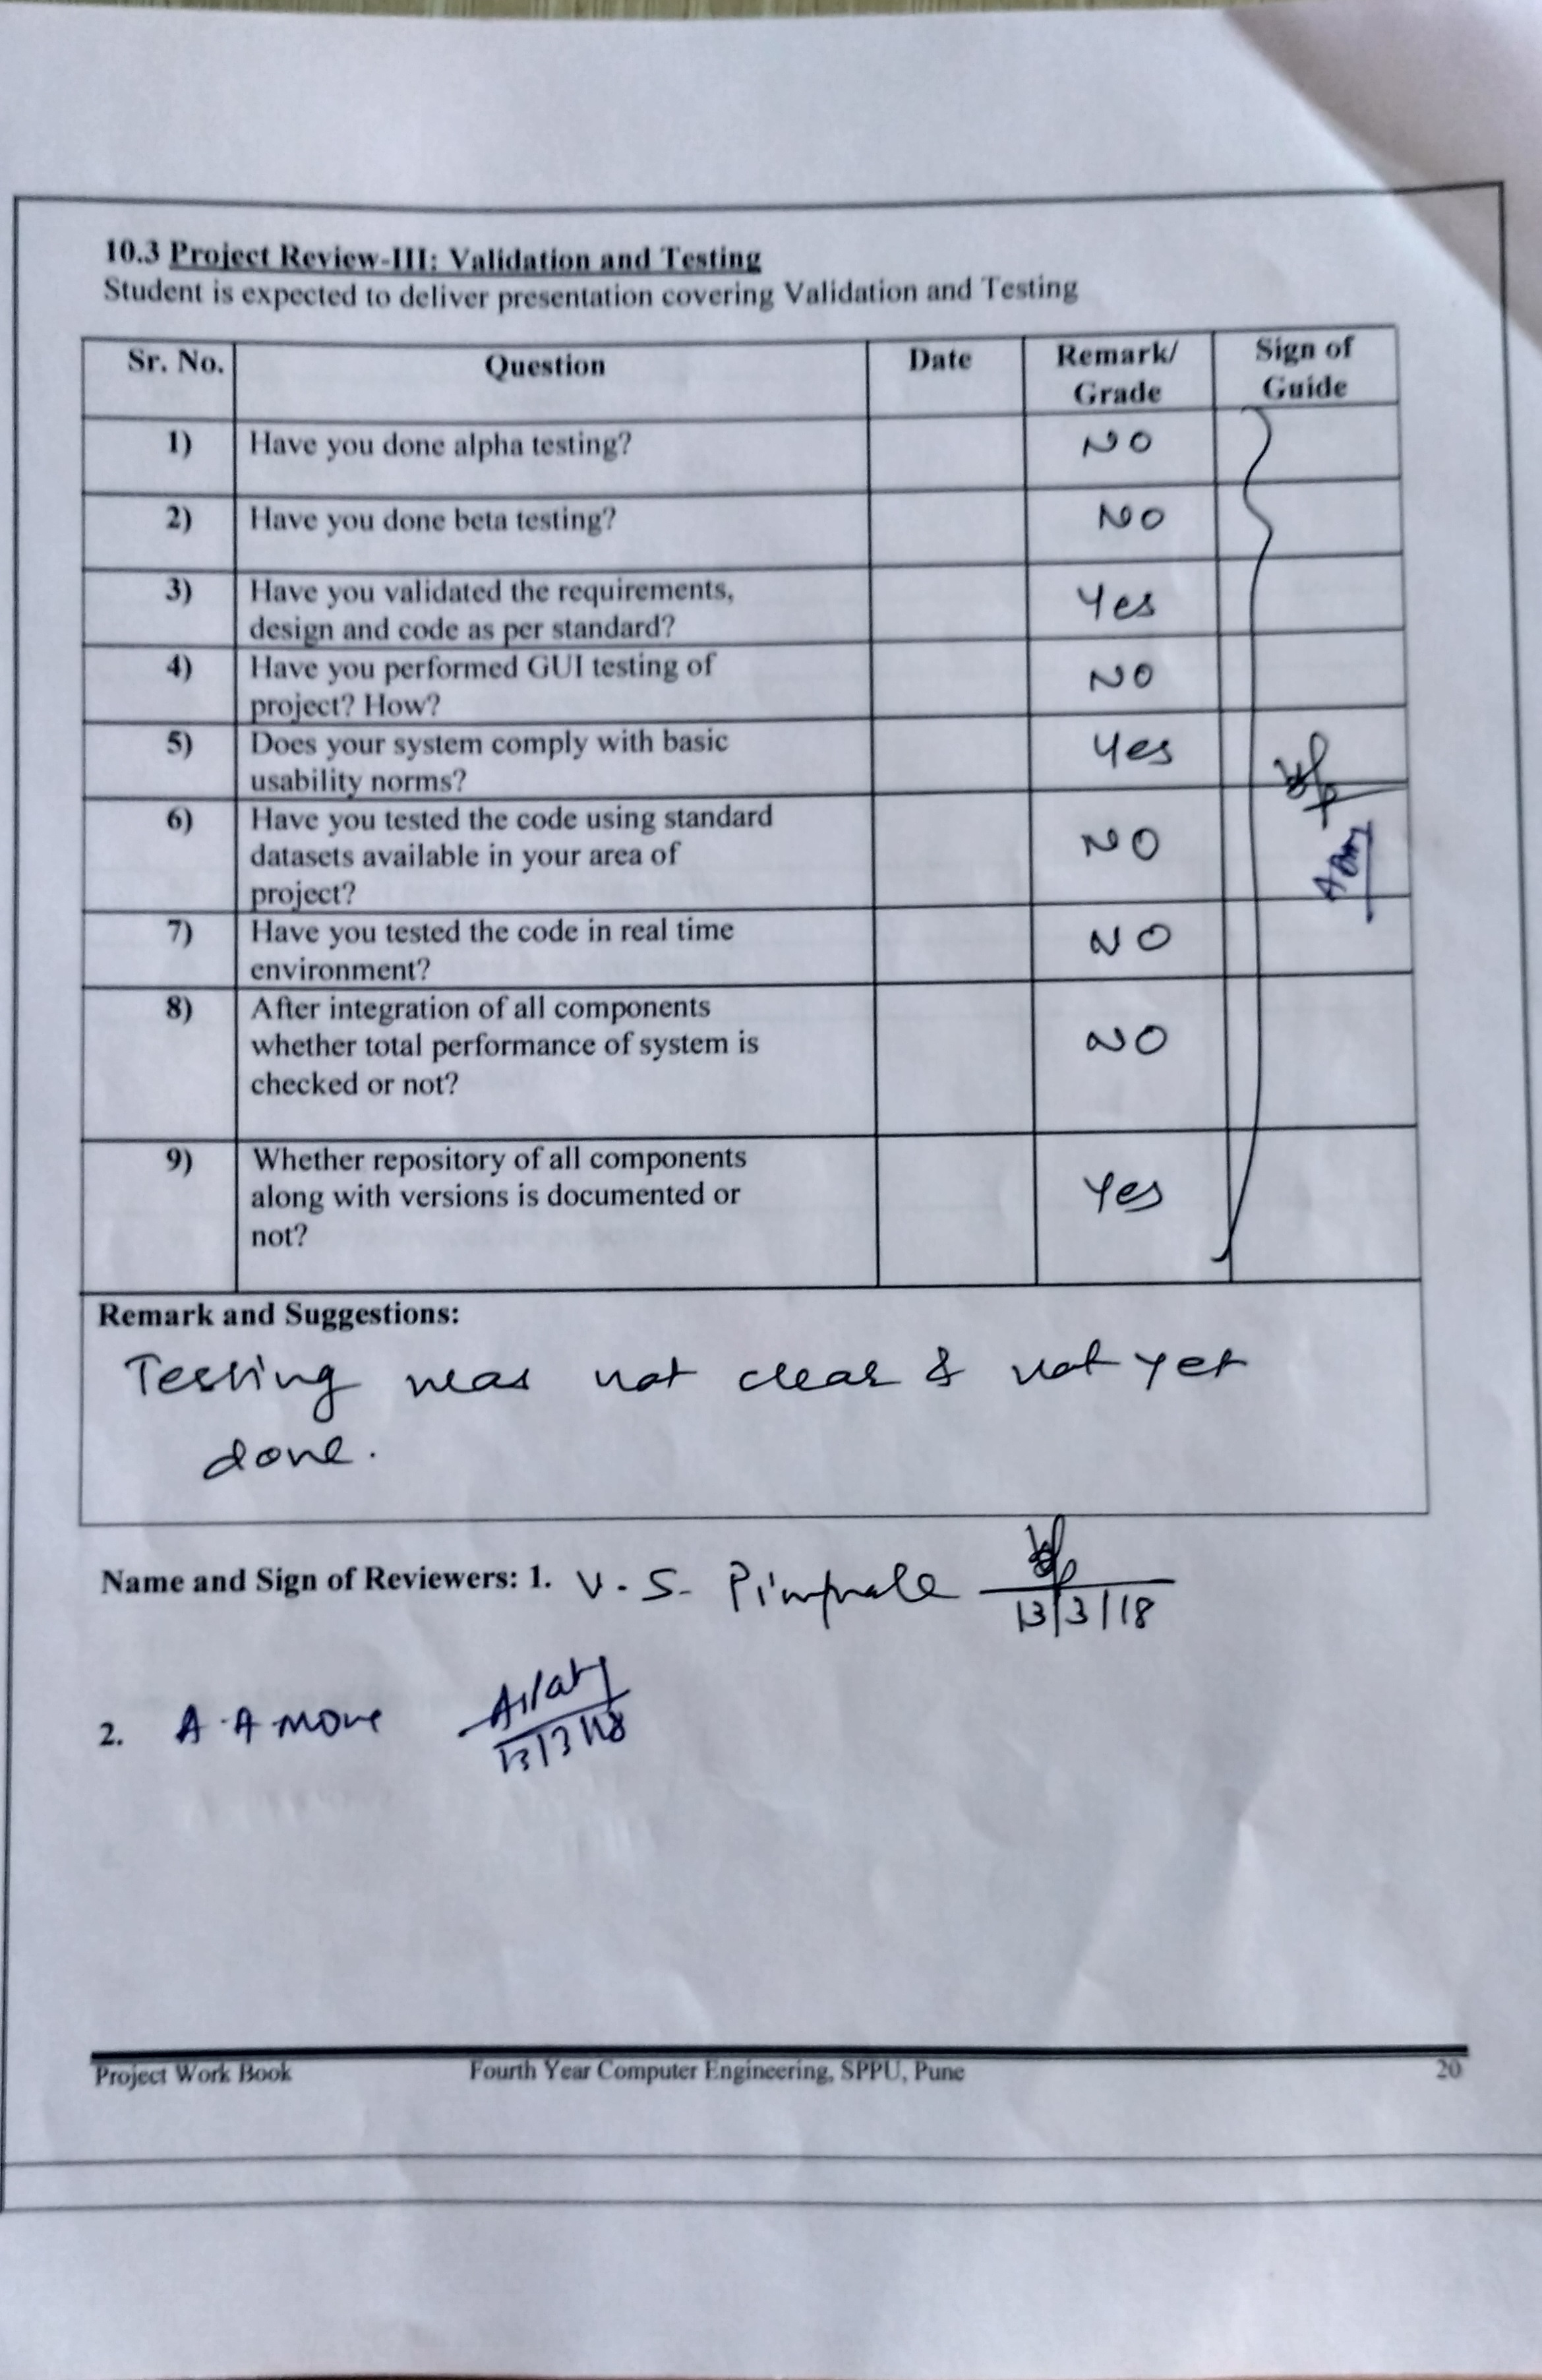 10.3 Project Review-III: Validation and Testing
Student is expected to deliver presentation covering Validation and Testing
Sr. No. Question Date Remark/ Grade Sign of Guide
1) Have you done alpha testing? NO
2) Have you done beta testing? NO
3) Have you validated the requirements, Yes
design and code as per standard?
4) Have you performed GUI testing of NO
project? How?
5) Does your system comply with basic Yes
usability norms?
6) Have you tested the code using standard
datasets available in your area of NO
project?
7) Have you tested the code in real time NO
environment?
8) After integration of all components
whether total performance of system is NO
checked or not?
9) Whether repository of all components
along with versions is documented or Yes
not?
Remark and Suggestions:
Testing was not clear & not yet
done.
Name and Sign of Reviewers: 1. V. S. Pimprale
13/3/18
2. A. A. More
13/3/18
Project Work Book Fourth Year Computer Engineering, SPPU, Pune 20